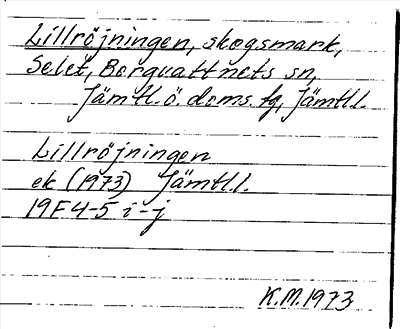 Lillröjningen, skogsmark,
Selet, Borgvattnets sn,
Jämtl. ö. doms. tg, Jämtl.l.
Lillröjningen
ek (1973) Jämtl.l.
19F 4-5 i-j
K.M. 1973